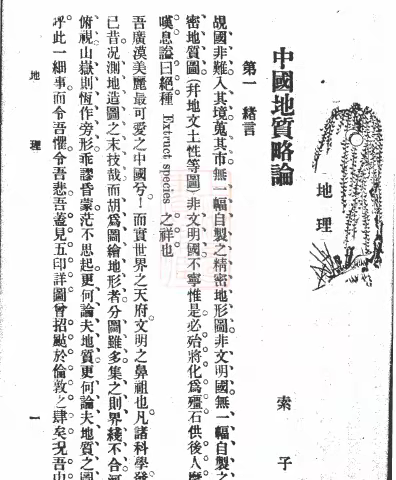 地理
中國地質略論
索子
第一 緒言
覘國非難入其境蒐其市無一幅自製之精密地形圖非文明國無一幅自製之
密地質圖(幷地文土性等圖)非文明國不寧惟是必殆將化爲殭石供後人摩
嘆息謚曰絕種 Extract species 之祥也
吾廣漠美麗最可愛之中國兮!而實世界之天府文明之鼻祖也凡諸科學發
已昔況測地造圖之末技哉而胡爲圖繪地形者分圖雖多集之則界綫不合河
俯視山嶽則恆作旁形乖謬昏蒙茫不思起更何論夫地質更何論夫地質之圖
呼此一細事而令吾懼令吾悲吾蓋見五印詳圖曾招颭於倫敦之肆矣況吾
地理
一